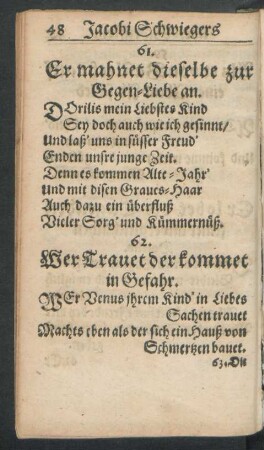 48 Jacobi Schwiegers
61.
Er mahnet dieselbe zur
Gegen-Liebe an.
DOrilis mein Liebstes Kind
Sey doch auch wie ich gesinnt/
Und laß' uns in süsser Freud'
Enden unsre junge Zeit.
Denn es kommen Alte-Jahr'
Und mit disen Graues-Haar
Auch dazu ein überfluß
Vieler Sorg' und Kümmernüß.
62.
Wer Trauet der kommet
in Gefahr.
WEr Venus jhrem Kind' in Liebes
Sachen trauet
Machts eben als der sich ein Hauß von
Schmertzen bauet.
63. Die